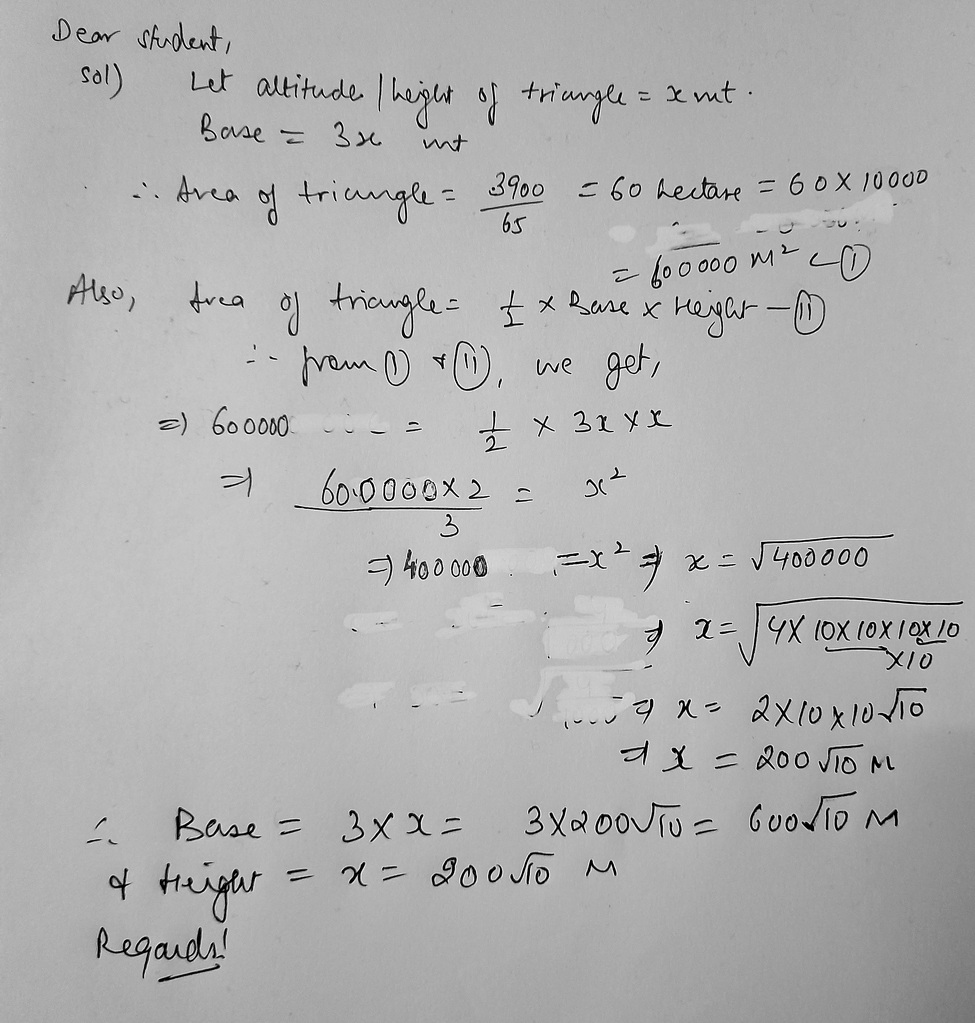 Dear student,
Sol) Let altitude / height of triangle = x mt.
Base = 3x mt
∴ Area of triangle = 3900/65 = 60 hectare = 60 X 10000
= 600000 M² ← (I)
Also, Area of triangle = 1/2 x Base x Height - (II)
∴ from (I) & (II), we get,
⇒ 600000 = 1/2 x 3x x x
⇒ 600000 x 2 / 3 = x²
⇒ 400000 = x² ⇒ x = √400000
⇒ x = √4X 10X 10X 10X 10
X10
⇒ x = 2X10 x 10√10
⇒ x = 200√10 M
∴ Base = 3 X x = 3X200√10 = 600√10 M
& Height = x = 200√10 M
Regards!